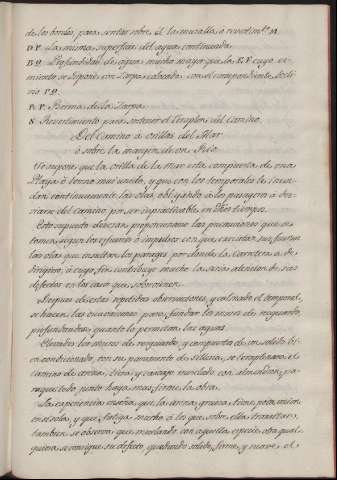 de los bordes, para sentar sobre él la muralla ó revestimto. M.
D.P. La misma superficie del agua continuada.
B.Q. Profundidad de agua mucho mayor que la E.F. cuyo ci-
miento se supone con Zarpa colocada con el correspondiente Decli-
vio P.Q.
R.P. Berma de la Zarpa.
S. Revestimiento para sostener el terraplen del camino.
Del Camino á orillas del Mar
ó sobre la margen de un Rio.
Se supone que la orilla de la Mar está compuesta de una
Playa ó terreno mui unido, y que con los temporales le inun-
dan continuamente las olas obligando á los pasageros á des-
viarse del camino por ser impracticable en tales tiempos.
Esto supuesto deveran proporcionarse las precauciones que se
tomen, segun los esfuerzos ó impulsos con que exercitan sus fuerzas
las olas que insultan los parages por donde la Carretera se de-
dirigiere, á cuyo fin contribuye mucho la atencion de sus
defectos en los casos que sobrevienen.
Despues de estas repetidas observaciones, y calmado el temporal,
se hacen las excavaciones para fundar los muros de resguardo,
profundandoles quanto lo permitan las aguas.
Elevados los muros de resguardo, y compuesta de un solido bi-
en condicionado, con su paramento de silleria, se terraplenará el
camino de arena, tierra, y cascajo mezclado con almendron, pa-
ra que todo junto haga mas firme la obra.
La experiencia enseña que la arena gruesa tiene poca union
en si sola, y que fatiga mucho á los que sobre ella transitan,
tambien se observa que mezclando con aquella especie, otra qual-
quiera se consigue su defecto, quedando solido, firme, y suave el